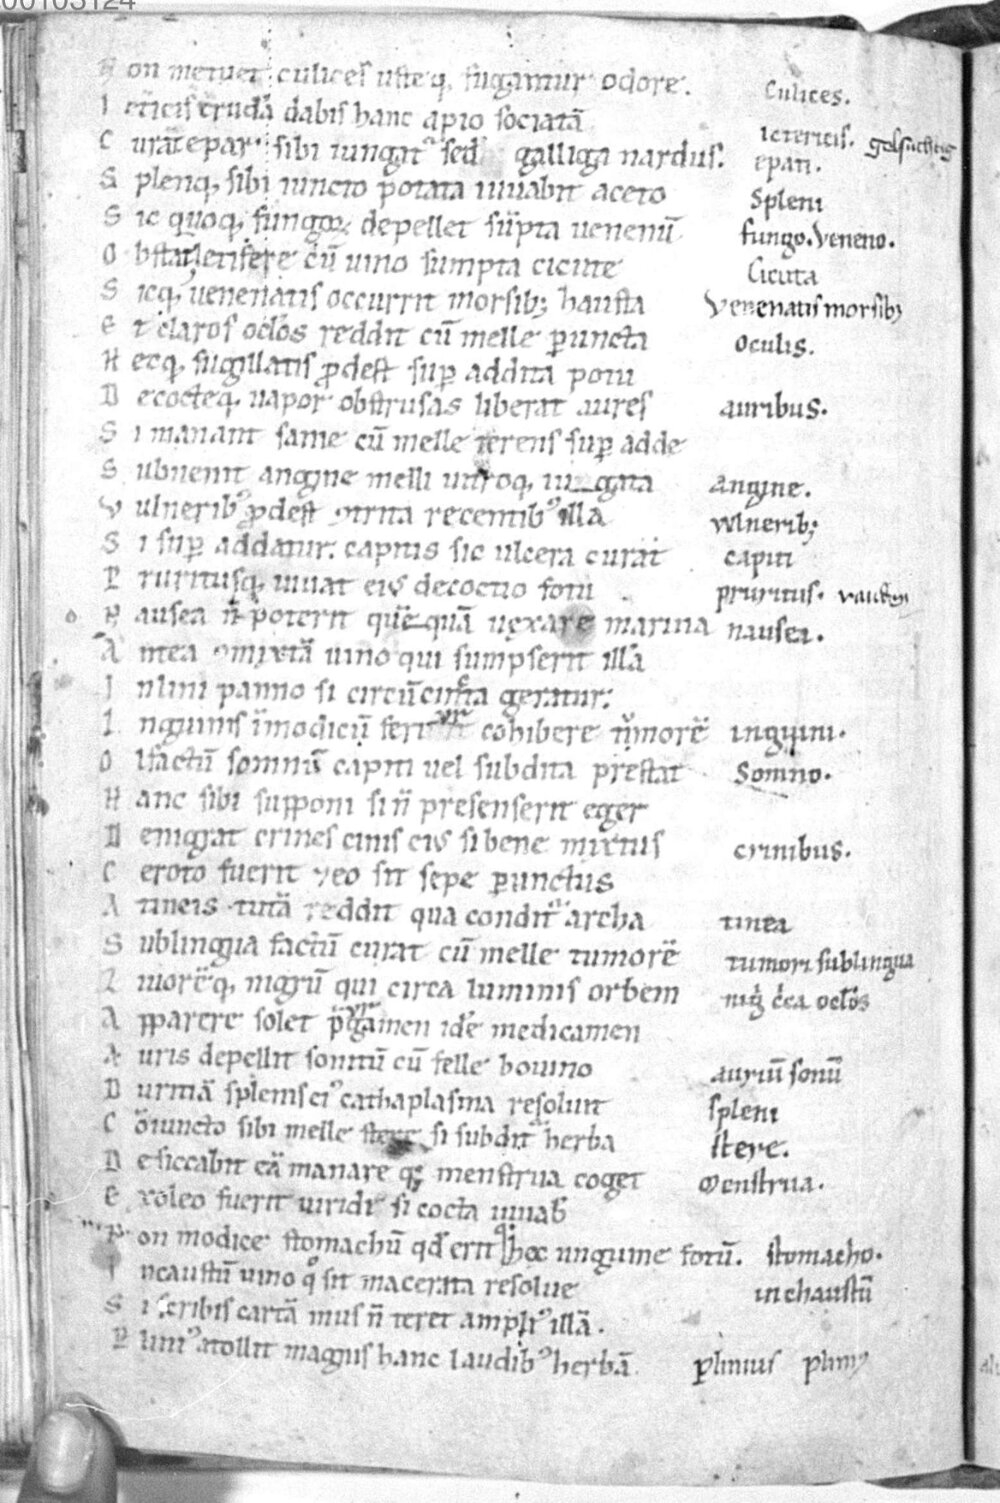 00103124
N on metuet culices usteq, fugantur odore. Culices.
I ctericis crudā dabis hanc apio sociatā ictericis. gelsuchtig
C urāt epar sibi iungat' sed galliga nardus. epati.
S plenq, sibi iuncto potata iuuabit aceto Spleni
S ic quoq, fungor depellet sūpta uenenū fungo. Veneno.
O bstat letifere cū uino sumpta cicute Cicuta
S icq, uenenatis occurrit morsib; hausta Venenatis morsib;
E t claros oclos reddit cū melle puncta oculis.
H ecq, sugillatis pdest sup addita potu
D ecocteq, uapor obstrusas liberat aures auribus.
S i manant sanie cū melle terens sup adde
S ubuenit angine melli uitroq, iu_gata angine.
V ulnerib' pdest ɔtrita recentib' illa Vulnerib;
S i sup addatur. capitis sic ulcera curat capiti
P ruritusq, iuuat ei' decoctio fotu pruritus.
N ausea n̄ poterit quē quā uexare marina nausea.
A ntea ɔmixtā uino qui sumpserit illā
I nlini panno si circūcincta geratur.
I nguinis īmodicū cohibere tumorē inguini.
O lfactū somnū capiti uel subdita prestat Somno.
H anc sibi supponi si n̄ presenserit eger
D enigrat crines cinis ei' si bene mixtus crinibus.
C eroto fuerit yeo sit sepe punctus
A tineis tutā reddit qua condit' archa tinea
S ublingua factū curat cū melle tumorē tumori sublingua
L iuorēq, nigrū qui circa luminis orbem nig ccā oclōs
A pparere solet medicamen
A uris depellit sonitū cū felle bouino auriū sonū
D uritiā splenis ei' cathaplasma resoluit spleni
C ōiuncto sibi melle si subdit' herba stere.
D esiccabit eā manare q; menstrua coget Menstrua.
E xoleo fuerit uiridi si cocta iuuab
N on modice stomachū qd' erit hoc unguine fotū. stomacho.
I ncaustū uino q° sit macerata resolue inchaustū
S i scribis cartā mus n̄ teret ampli' illā.
P lini' atollit magnis hanc laudib' herbā plinius plinii